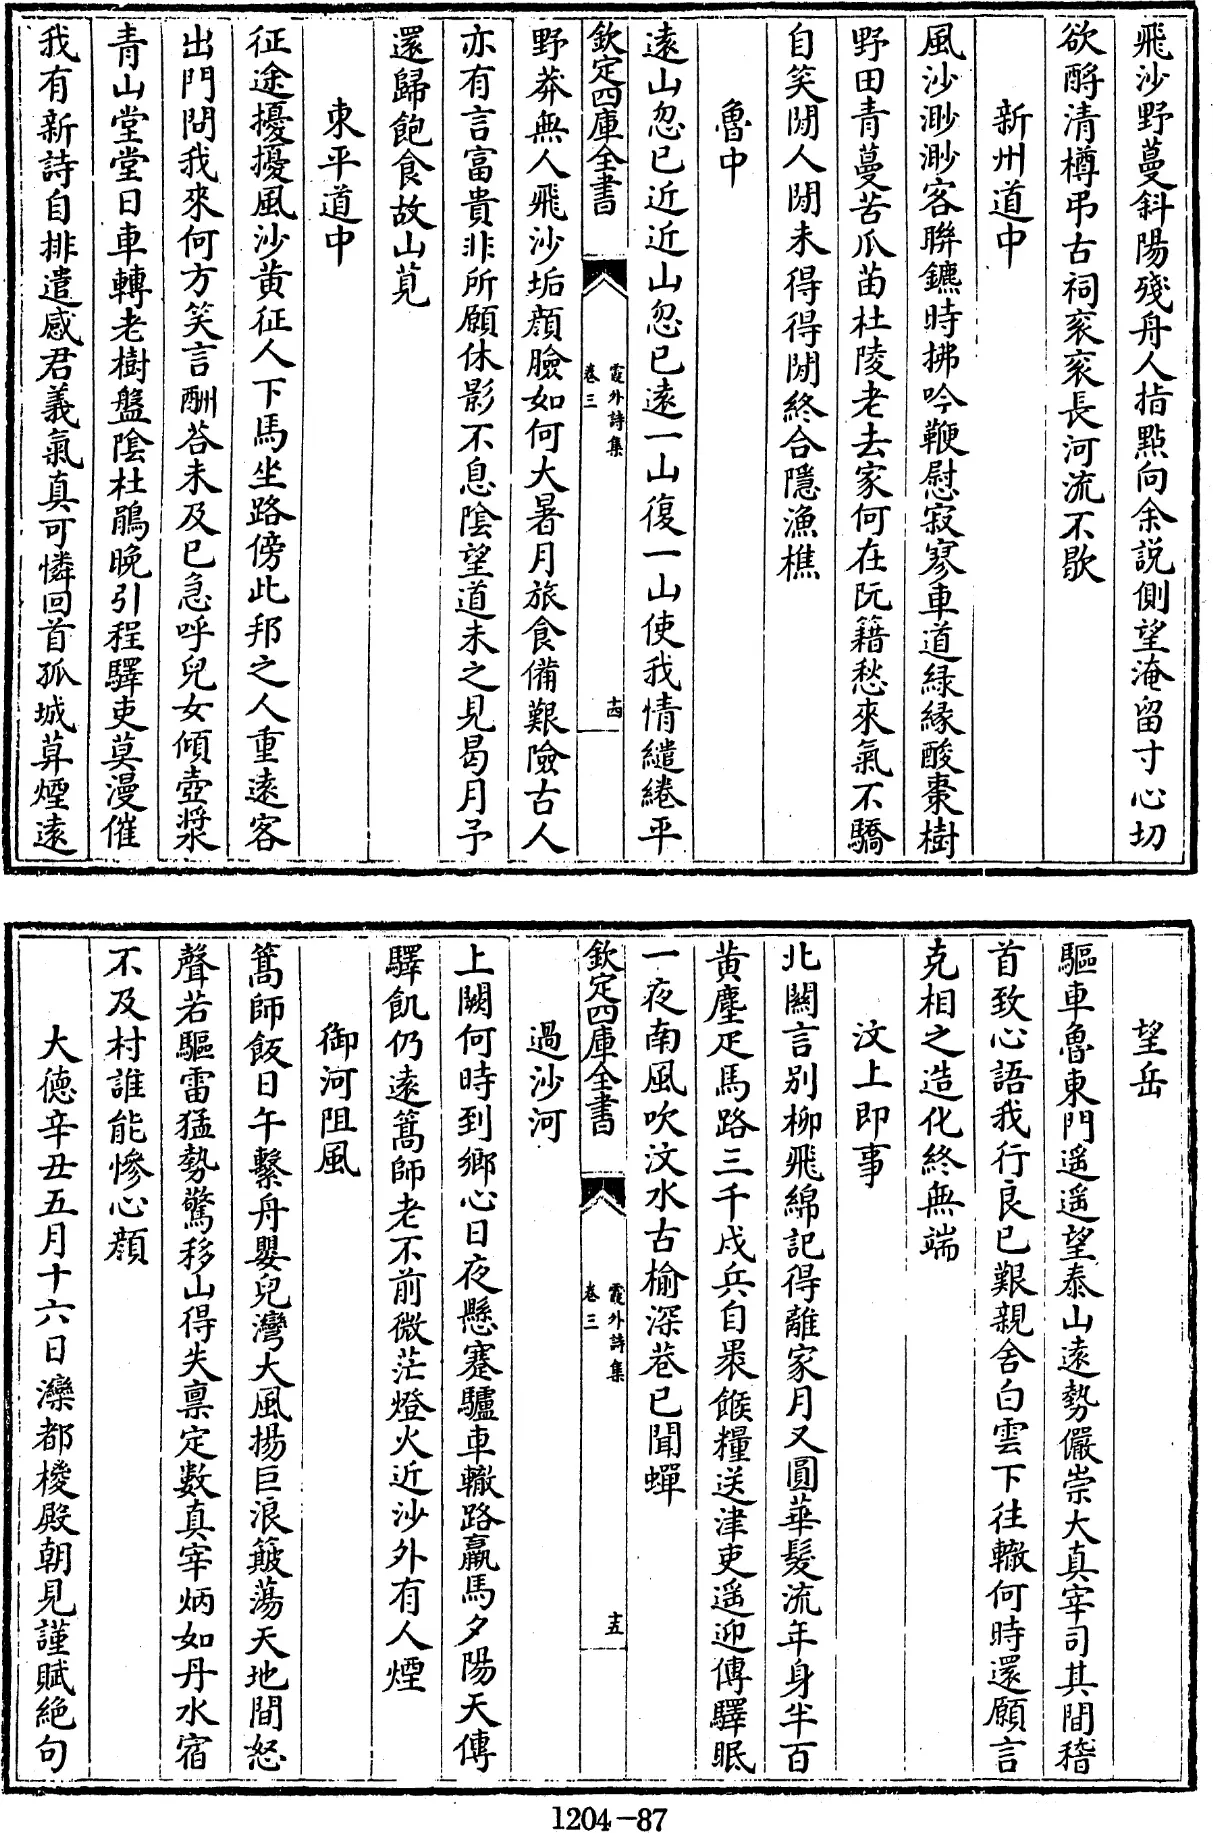 飛沙野蔓斜陽殘舟人指點向余説側望淹留寸心切
欲酹清樽弔古祠衮衮長河流不歇
新州道中
風沙渺渺客聯鑣時拂吟鞭慰寂寥車道緑縁酸棗樹
野田青蔓苦瓜苗杜陵老去家何在阮籍愁來氣不驕
自笑閒人閒未得得閒終合隱漁樵
魯中
遠山忽已近近山忽已遠一山復一山使我情繾綣平
欽定四庫全書
霞外詩集
卷三
十四
野莽無人飛沙垢顔臉如何大暑月旅食備艱險古人
亦有言富貴非所願休影不息隂望道未之見曷月予
還歸飽食故山莧
東平道中
征途擾擾風沙黄征人下馬坐路傍此邦之人重遠客
出門問我來何方笑言酬答未及已急呼兒女傾壺漿
青山堂堂日車轉老樹盤隂杜鵑晩引程驛吏莫漫催
我有新詩自排遣感君義氣真可憐回首孤城草煙遠
望岳
驅車魯東門遥遥望泰山遠勢儼崇大真宰司其間稽
首致心語我行良已艱親舍白雲下往轍何時還願言
克相之造化終無端
汶上即事
北闕言别柳飛綿記得離家月又圓華髮流年身半百
黄塵疋馬路三千戍兵自褁餱糧送津吏遥迎傳驛眠
一夜南風吹汶水古榆深巷已聞蟬
欽定四庫全書
霞外詩集
卷三
十五
過沙河
上闕何時到鄉心日夜懸蹇驢車轍路羸馬夕陽天傳
驛飢仍遠篙師老不前微茫燈火近沙外有人煙
御河阻風
篙師飯日午繫舟嬰兒灣大風揚巨浪簸蕩天地間怒
聲若驅雷猛勢驚移山得失禀定數真宰炳如丹水宿
不及村誰能慘心顔
大德辛丑五月十六日灤都椶殿朝見謹賦絶句
1204-87